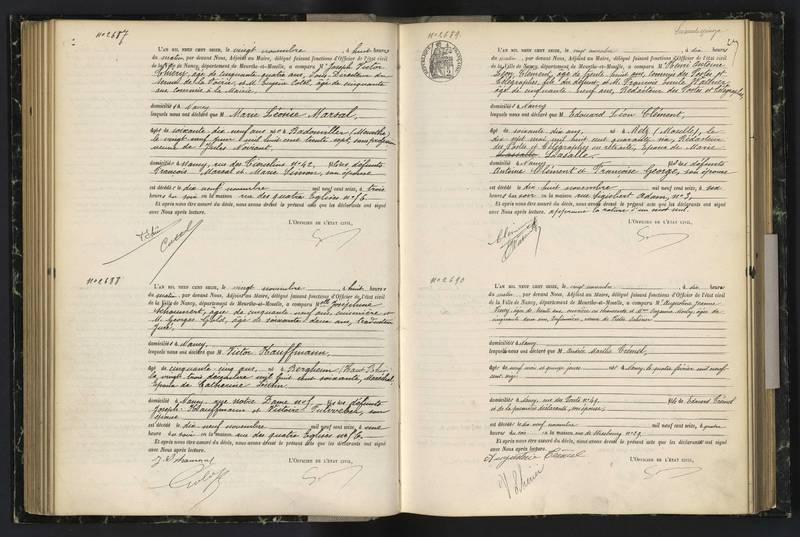 No 2687
L'AN MIL NEUF CENT SEIZE, le vingt novembre, à huit heures
du matin, par devant Nous, Adjoint au Maire, délégué faisant fonctions d'Officier de l'état civil
de la Ville de Nancy, département de Meurthe-et-Moselle, a comparu Mr Joseph Victor
âgé de cinquante quatre ans, Sous Directeur du
Service de la Voirie, et M. Eugène âgé de cinquante
ans à la Mairie
domiciliés à Nancy
lesquels nous ont déclaré que M Marie Léonie Marsal,
âgé de soixante dix neuf ans né à Badonviller (Meurthe),
le vingt neuf mil huit cent trente sept, sans profession
veuve de Jules
domiciliée à Nancy, rue des No 42, fille des défunts
François Marsal et Marie Simon, son épouse
est décédé le dix neuf novembre mil neuf cent seize, à trois
heures du soir en la maison rue des quatre Eglises no 6.
Et après nous être assuré du décès, nous avons dressé le présent acte que les déclarants ont signé
avec Nous après lecture.
L'OFFICIER DE L'ÉTAT CIVIL,
No 2688
L'AN MIL NEUF CENT SEIZE, le vingt novembre, à huit heures
du matin, par devant Nous, Adjoint au Maire, délégué faisant fonctions d'Officier de l'état civil
de la Ville de Nancy, département de Meurthe-et-Moselle, a comparu Mlle Joséphine
âgée de cinquante neuf ans, cuisinière et
M. Georges âgé de soixante deux ans, traducteur
juré
domiciliés à Nancy,
lesquels nous ont déclaré que M Victor Kauffmann,
âgé de cinquante cinq ans né à Bergheim (Haut-Rhin)
le vingt trois décembre mil huit cent soixante,
Epoux de Catherine
domicilié à Nancy, rue Notre Dame no fils des défunts
Joseph Kauffmann et Victoire son
épouse
est décédé le dix neuf novembre mil neuf cent seize, à une
heure du soir en la maison rue des quatre Eglises no 6.
Et après nous être assuré du décès, nous avons dressé le présent acte que les déclarants ont signé
avec Nous après lecture.
L'OFFICIER DE L'ÉTAT CIVIL,
No 2689
L'AN MIL NEUF CENT SEIZE, le vingt novembre, à dix heures
du matin, par devant Nous, Adjoint au Maire, délégué faisant fonctions d'Officier de l'état civil
de la Ville de Nancy, département de Meurthe-et-Moselle, a comparu Mr Henri Antoine
Léon Clément, âgé de trente huit ans, commis des Postes et
Télégraphes, fils du défunt et M. François Emile
âgé de cinquante neuf ans, Rédacteur des Postes et Télégraphes
domiciliés à Nancy
lesquels nous ont déclaré que M. Edouard Léon Clément,
âgé de soixante dix ans, né à Metz (Moselle), le
dix sept mai mil huit cent quarante six, Rédacteur
des Postes et Télégraphes en retraite, époux de Marie
Lasalle
domicilié à Nancy fils des défunts
Antoine Clément et Françoise George, son épouse
est décédé le dix huit novembre mil neuf cent seize, à six
heures du soir en la maison rue Sigisbert Adam, no 3,
Et après nous être assuré du décès, nous avons dressé le présent acte que les déclarants ont signé
avec Nous après lecture, approuvé la rature d'un mot nul.
L'OFFICIER DE L'ÉTAT CIVIL,
No 2690
L'AN MIL NEUF CENT SEIZE, le vingt novembre, à dix heures
du matin, par devant Nous, Adjoint au Maire, délégué faisant fonctions d'Officier de l'état civil
de la Ville de Nancy, département de Meurthe-et-Moselle, a comparu Me Augustine Jeanne
âgée de trente ans, ouvrière en chaussures et Mme Eugénie âgée de
cinquante deux ans,
domiciliés à Nancy
lesquels nous ont déclaré que M. Andrée Marthe Crémel,
âgé de neuf mois et quinze jours né à Nancy le quatre février mil neuf
cent seize
domicilié à Nancy, rue No 49, fille de Edouard Crémel
et de la première déclarante, son épouse,
est décédé le dix neuf novembre mil neuf cent seize, à quatre
heures du soir en la maison rue de Strasbourg No 29.
Et après nous être assuré du décès, nous avons dressé le présent acte que les déclarants ont signé
avec Nous après lecture.
L'OFFICIER DE L'ÉTAT CIVIL,